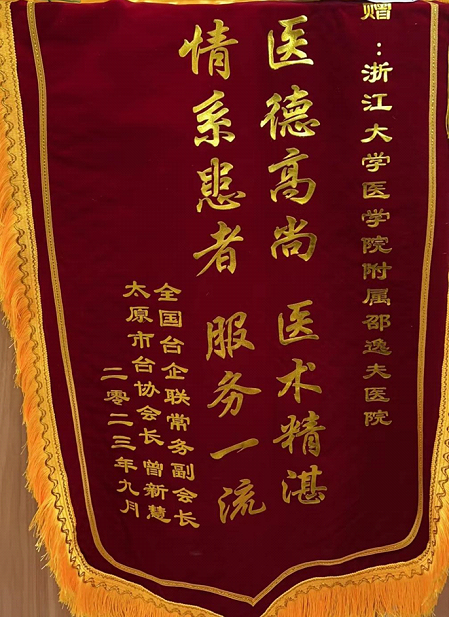 赠：浙江大学医学院附属邵逸夫医院
医德高尚 医术精湛
情系患者 服务一流
全国台企联常务副会长
太原市台协会长 曾新慧
二零二三年九月